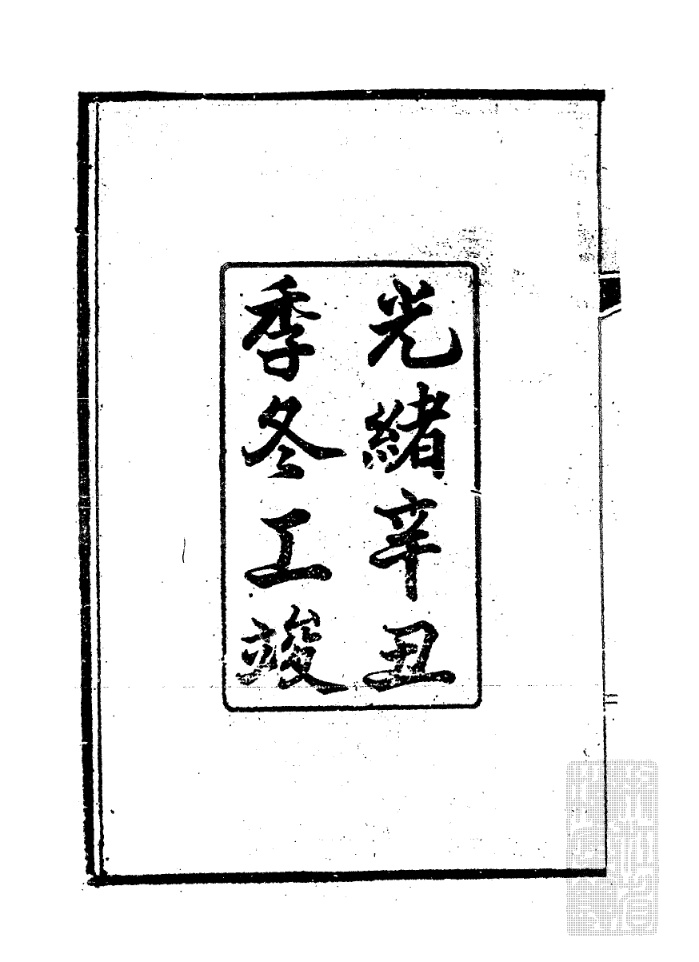 光緒辛丑
季冬工竣